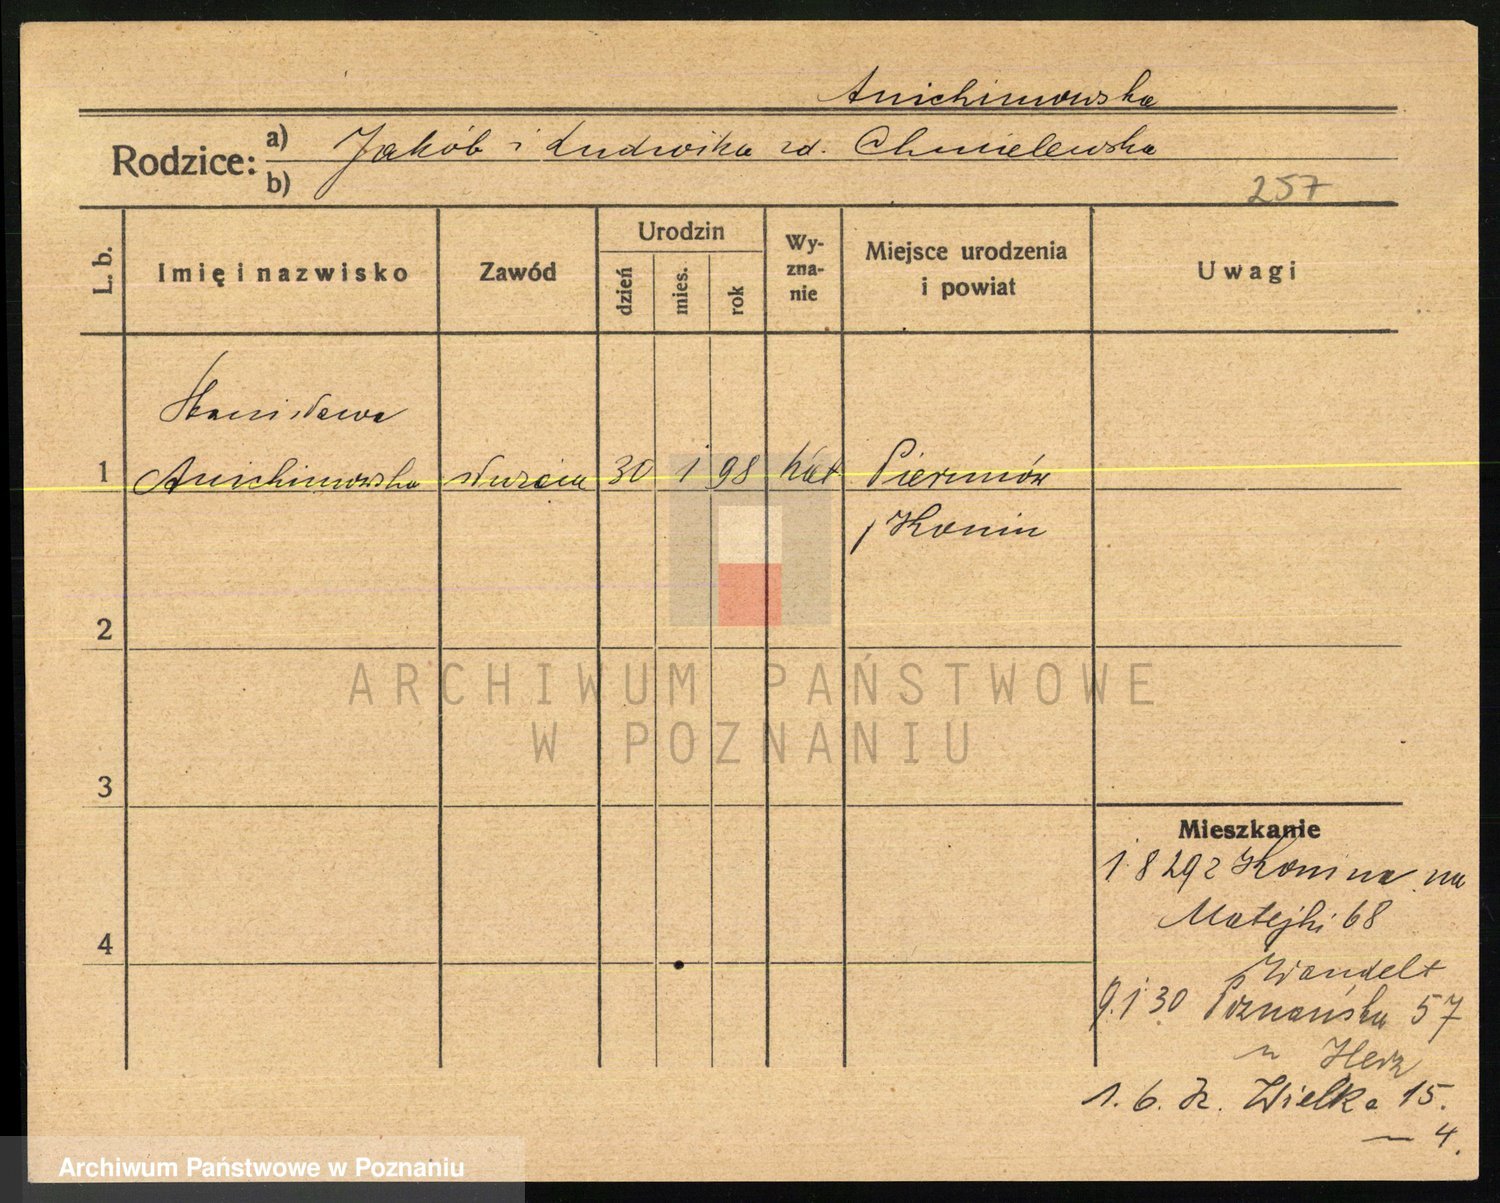 Anichimowska
Rodzice: a) Jakób i Ludwika zd. Chmielewska
b)
257
L. b.
Imię i nazwisko
Zawód
Urodzin
dzień
mies.
rok
Wy-
zna-
nie
Miejsce urodzenia
i powiat
Uwagi
Stanisława
1 Anichimowska służąca 30 1 98 kat
Konin
2
3
4
Mieszkanie
1.8 29 z Konina na
Matejki 68
Wandelt
9.1 30 Poznańska 57
u Herz
1. 6. Wielka 15.
— 4.
ARCHIWUM PAŃSTWOWE
W POZNANIU
Archiwum Państwowe w Poznaniu